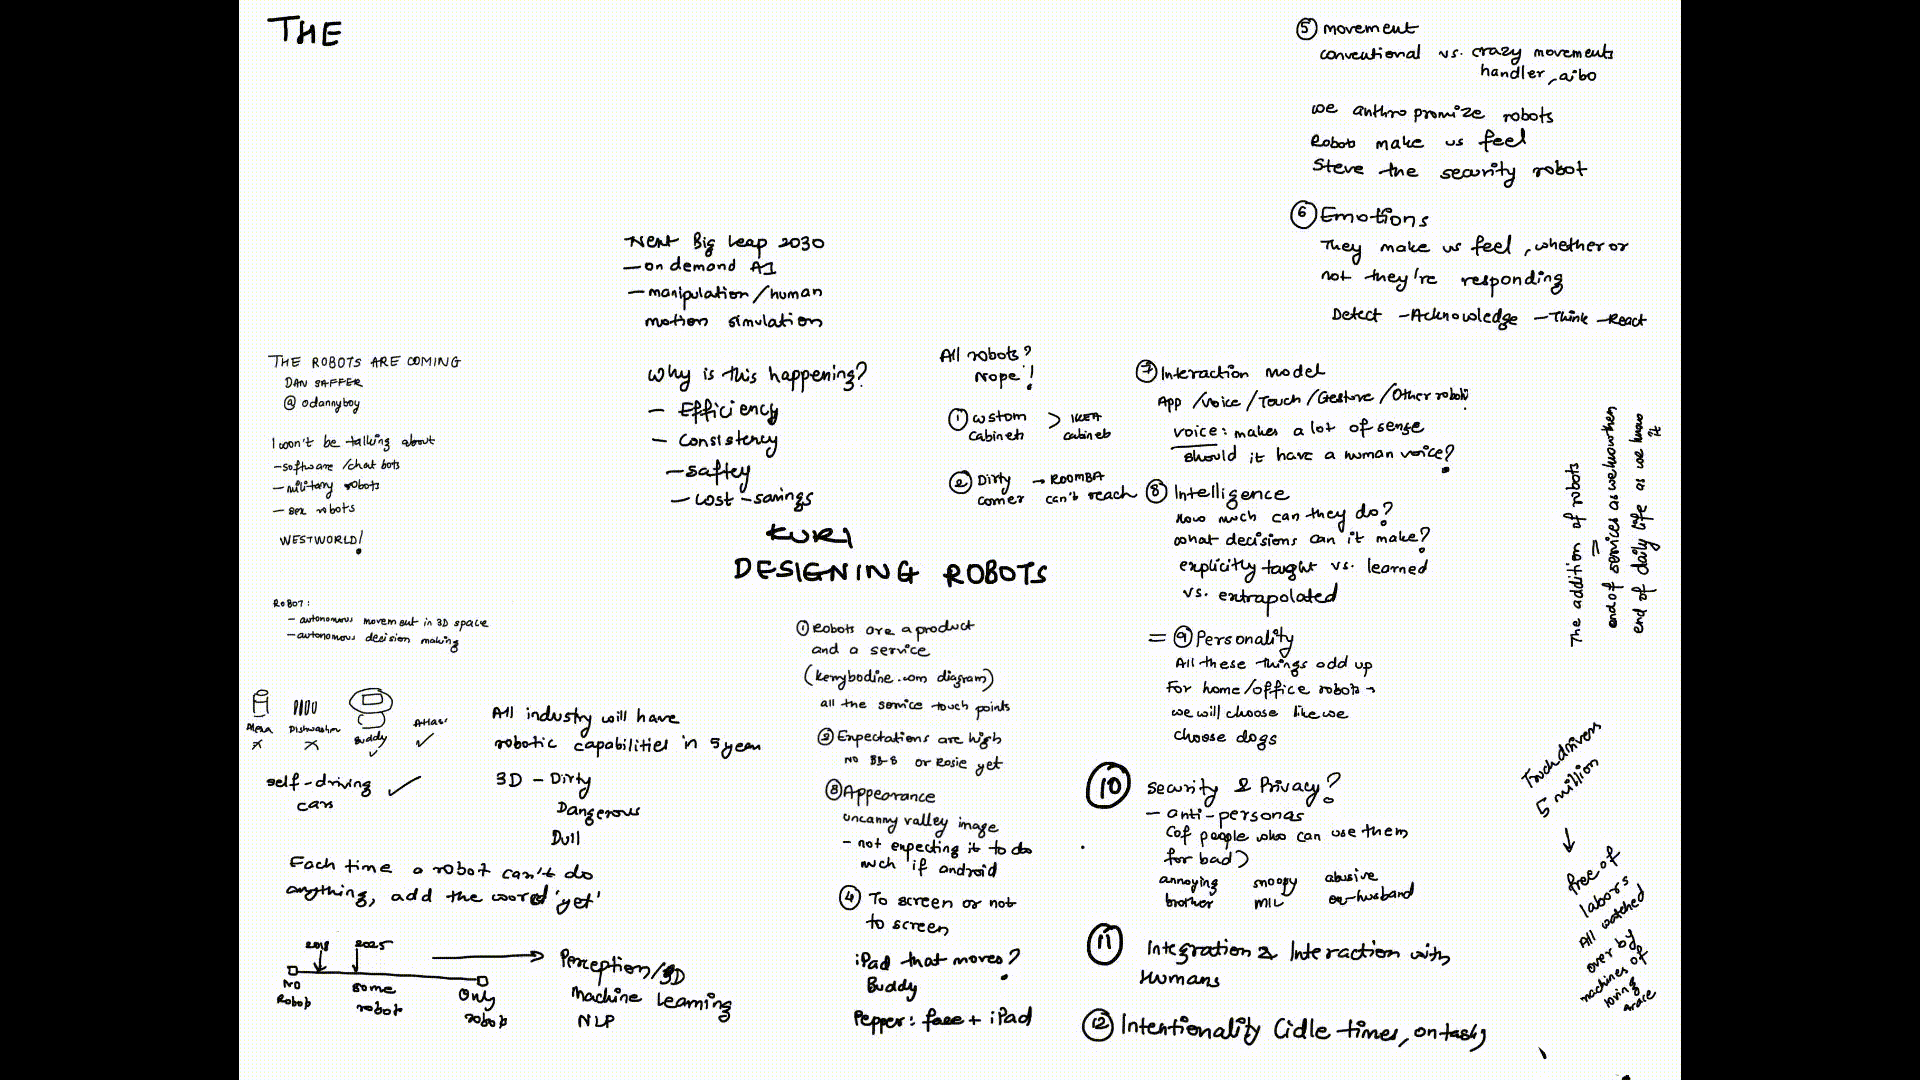 THE
THE ROBOTS ARE COMING
DAN SAFFER
@ odannyboy
I won't be talking about
- software / chat bots
- military robots
- sex robots
WESTWORLD!
ROBOT:
- autonomous movement in 3D space
- autonomous decision making
Alexa Dishwasher Buddy Atlas
self-driving
cars
Each time a robot can't do
anything, add the word 'yet'
2018 2025
NO
Robot
some
robot
Only
robot
Perception/3D
Machine Learning
NLP
All industry will have
robotic capabilities in 5 year
3D - Dirty
Dangerous
Dull
Next Big Leap 2030
- on demand AI
- manipulation / human
motion simulation
Why is this happening?
- Efficiency
- Consistency
- Saftey
- Cost - savings
All robots?
Nope!
① Custom > IKEA
cabinets cabinets
② Dirty → ROOMBA
corner can't reach
KURI
DESIGNING ROBOTS
① Robots are a product
and a service
(kerrybodine.com diagram)
all the service touch points
② Expectations are high
NO BB-8 or Rosie yet
③ Appearance
uncanny valley image
- not expecting it to do
much if android
④ To screen or not
to screen
iPad that moves?
Buddy
Pepper: face + iPad
⑤ movement
conventional vs. crazy movements
handler, aibo
we anthropromize robots
Robots make us feel
Steve the security robot
⑥ Emotions
They make us feel, whether or
not they're responding
Detect - Acknowledge - Think - React
⑦ Interaction model
App / Voice / Touch / Gesture / Other robots
voice: makes a lot of sense
should it have a human voice?
⑧ Intelligence
How much can they do?
What decisions can it make?
explicitly taught vs. learned
vs. extrapolated
= ⑨ Personality
All these things add up
For home/office robots →
we will choose like we
choose dogs
⑩ Security & Privacy?
- anti-personas
(of people who can use them
for bad)
annoying snoopy abusive
brother MIL ex-husband
⑪ Integration & Interaction with
Humans
⑫ Intentionality (idle times, on task)
The addition of robots
=
end of services as we know then
end of daily life as we know
it
Truck drivers
5 million
↓
free of
labors
All watched
over by
machines of
loving
grace